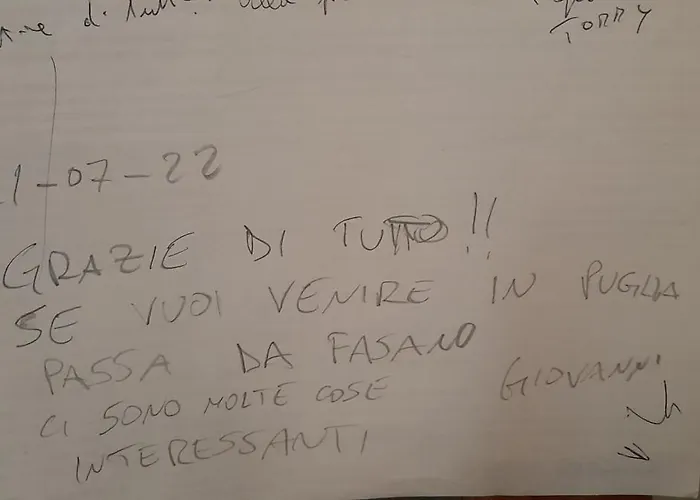 di tutto!
TORRY
1-07-22
GRAZIE DI TUTTO!!
SE VUOI VENIRE IN PUGLIA
PASSA DA FASANO
CI SONO MOLTE COSE
INTERESSANTI
GIOVANNI